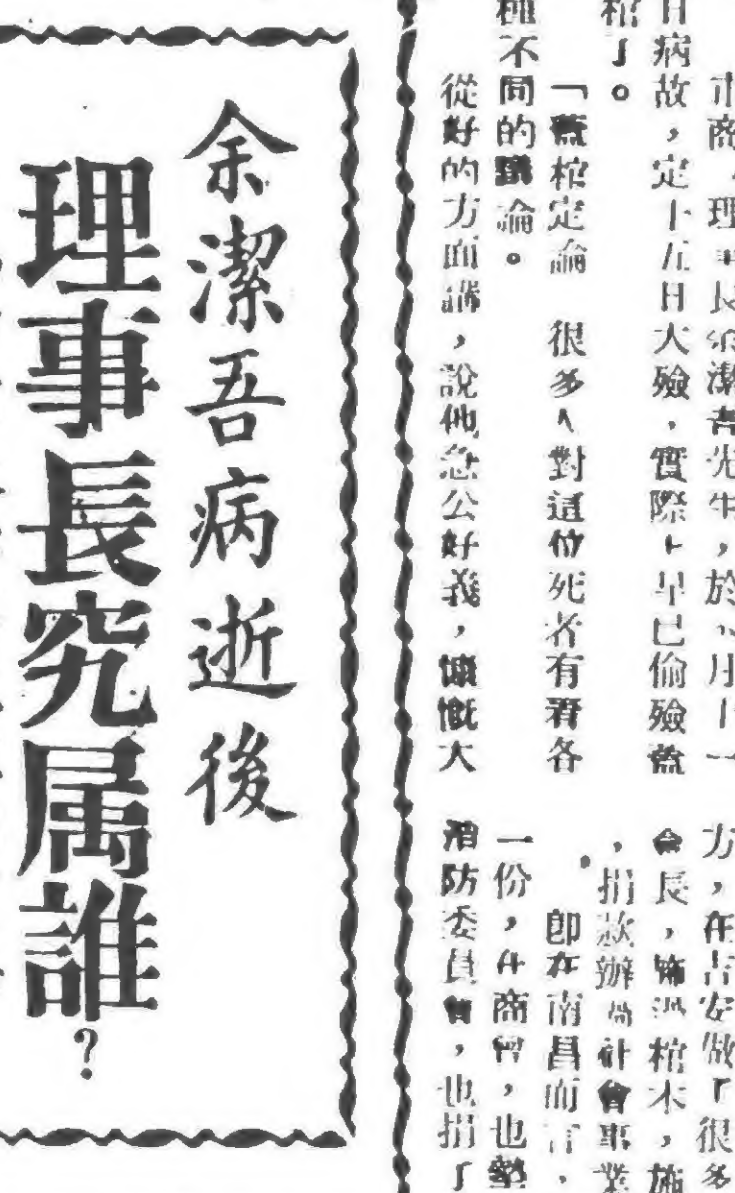 余潔吾病逝後
理事長究属誰?
市商會理事長余潔吾先生,於
日病故,定十五日大殮,實際上早已偷殮蓋
棺了。
「蓋棺定論 很多人對這位死者有着各
種不同的議論。
從好的方面講,說他急公好義,慷慨大
方,在吉安做了很多
會長,施過棺木,施
,捐款辦過社會事業
。
即在南昌而言,
一份,在商會,也墊
消防委員會,也捐了